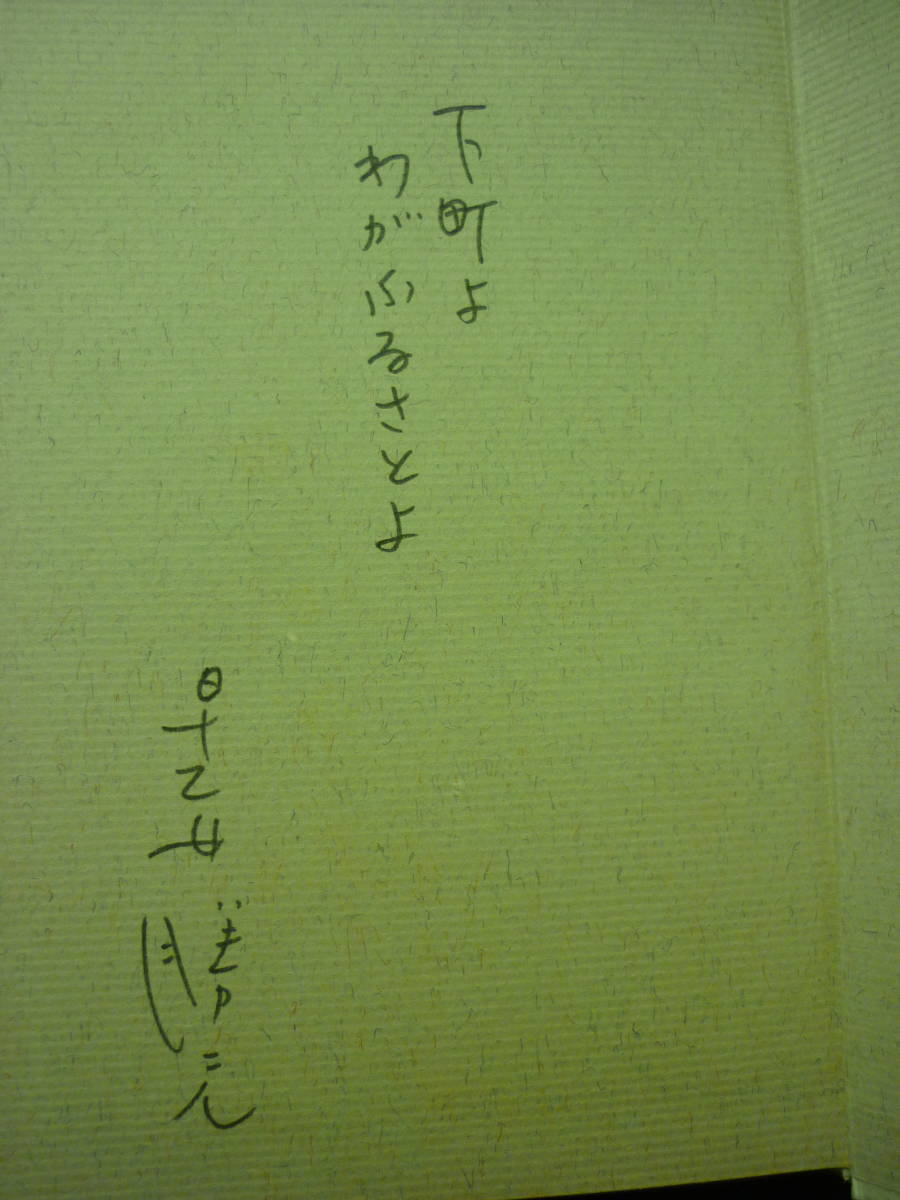 下町よ
わがふるさとよ
早乙女勝元